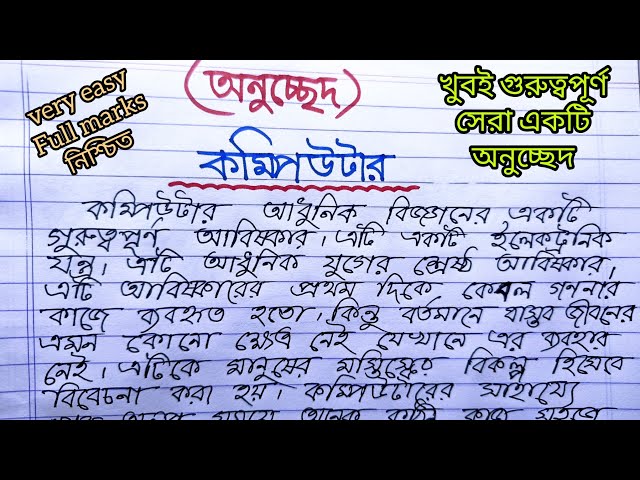 (অনুচ্ছেদ)
very easy
Full marks
নিশ্চিত
খুবই গুরুত্বপূর্ণ
সেরা একটি
অনুচ্ছেদ
কম্পিউটার
কম্পিউটার আধুনিক বিজ্ঞানের একটি
গুরুত্বপূর্ণ আবিষ্কার। এটি একটি ইলেকট্রনিক
যন্ত্র। এটি আধুনিক যুগের শ্রেষ্ঠ আবিষ্কার।
এটি আবিষ্কারের প্রথম দিকে কেবল গণনার
কাজে ব্যবহৃত হতো। কিন্তু বর্তমানে বাস্তব জীবনের
এমন কোনো ক্ষেত্র নেই যেখানে এর ব্যবহার
নেই। এটিকে মানুষের মস্তিষ্কের বিকল্প হিসেবে
বিবেচনা করা হয়। কম্পিউটারের সাহায্যে
অনেক কঠিন কাজ